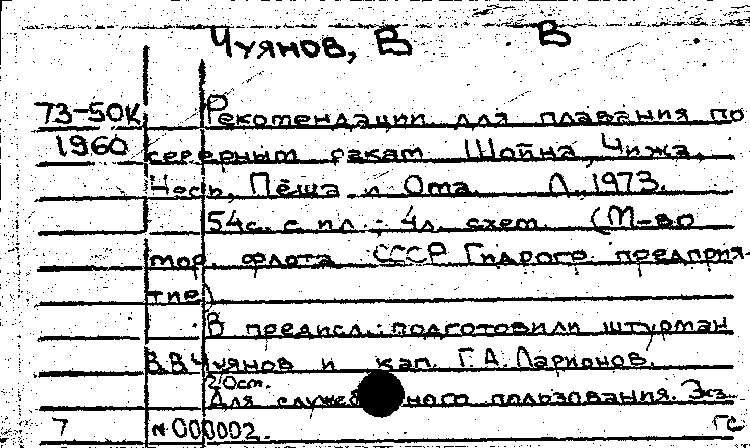 Чуянов, В В
73-50К Рекомендации для плавания по
1960 северным рекам Шойна, Чижа,
Несь, Пёша и Ома. Л., 1973.
54с. с ил.; 4л. схем. (М-во
мор. флота СССР Гидрогр. предприя-
тие).
В предисл.: подготовили штурман
В.В.Чуянов и кап. Г.А. Ларионов.
2/Ост.
Для служебного пользования. Экз.
7 №000002. ГС